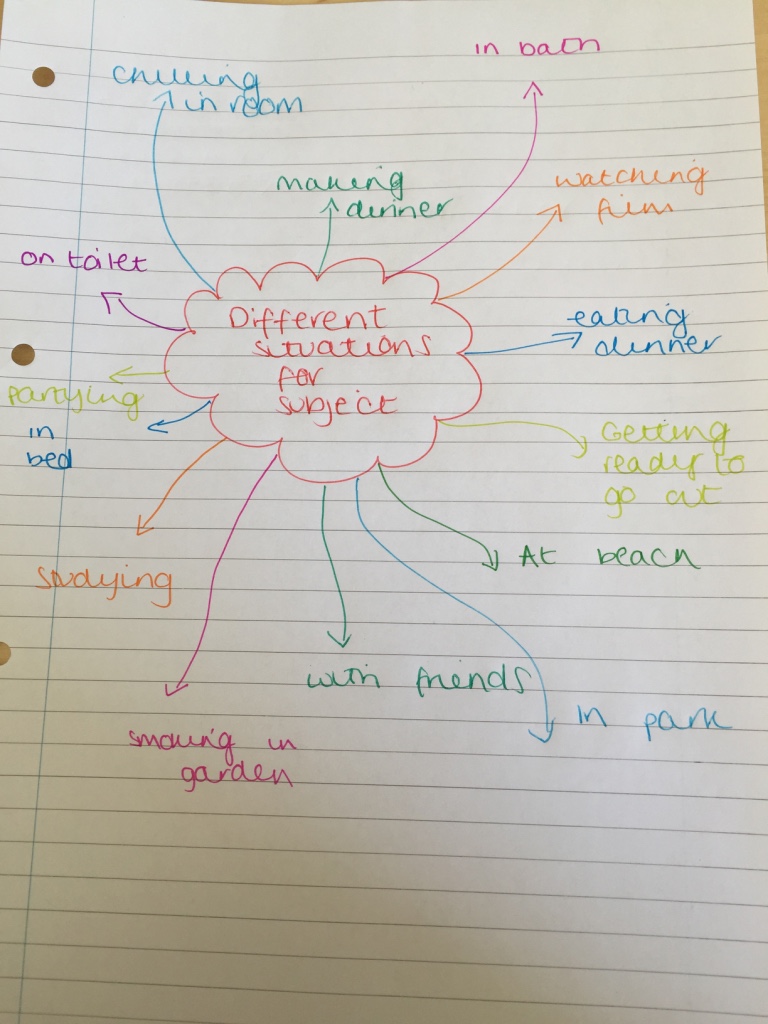 in bath
chilling
in room
making
dinner
watching
film
on toilet
Different
situations
for
subject
eating
dinner
partying
in
bed
Getting
ready to
go out
At beach
studying
with friends
in park
smoking in
garden